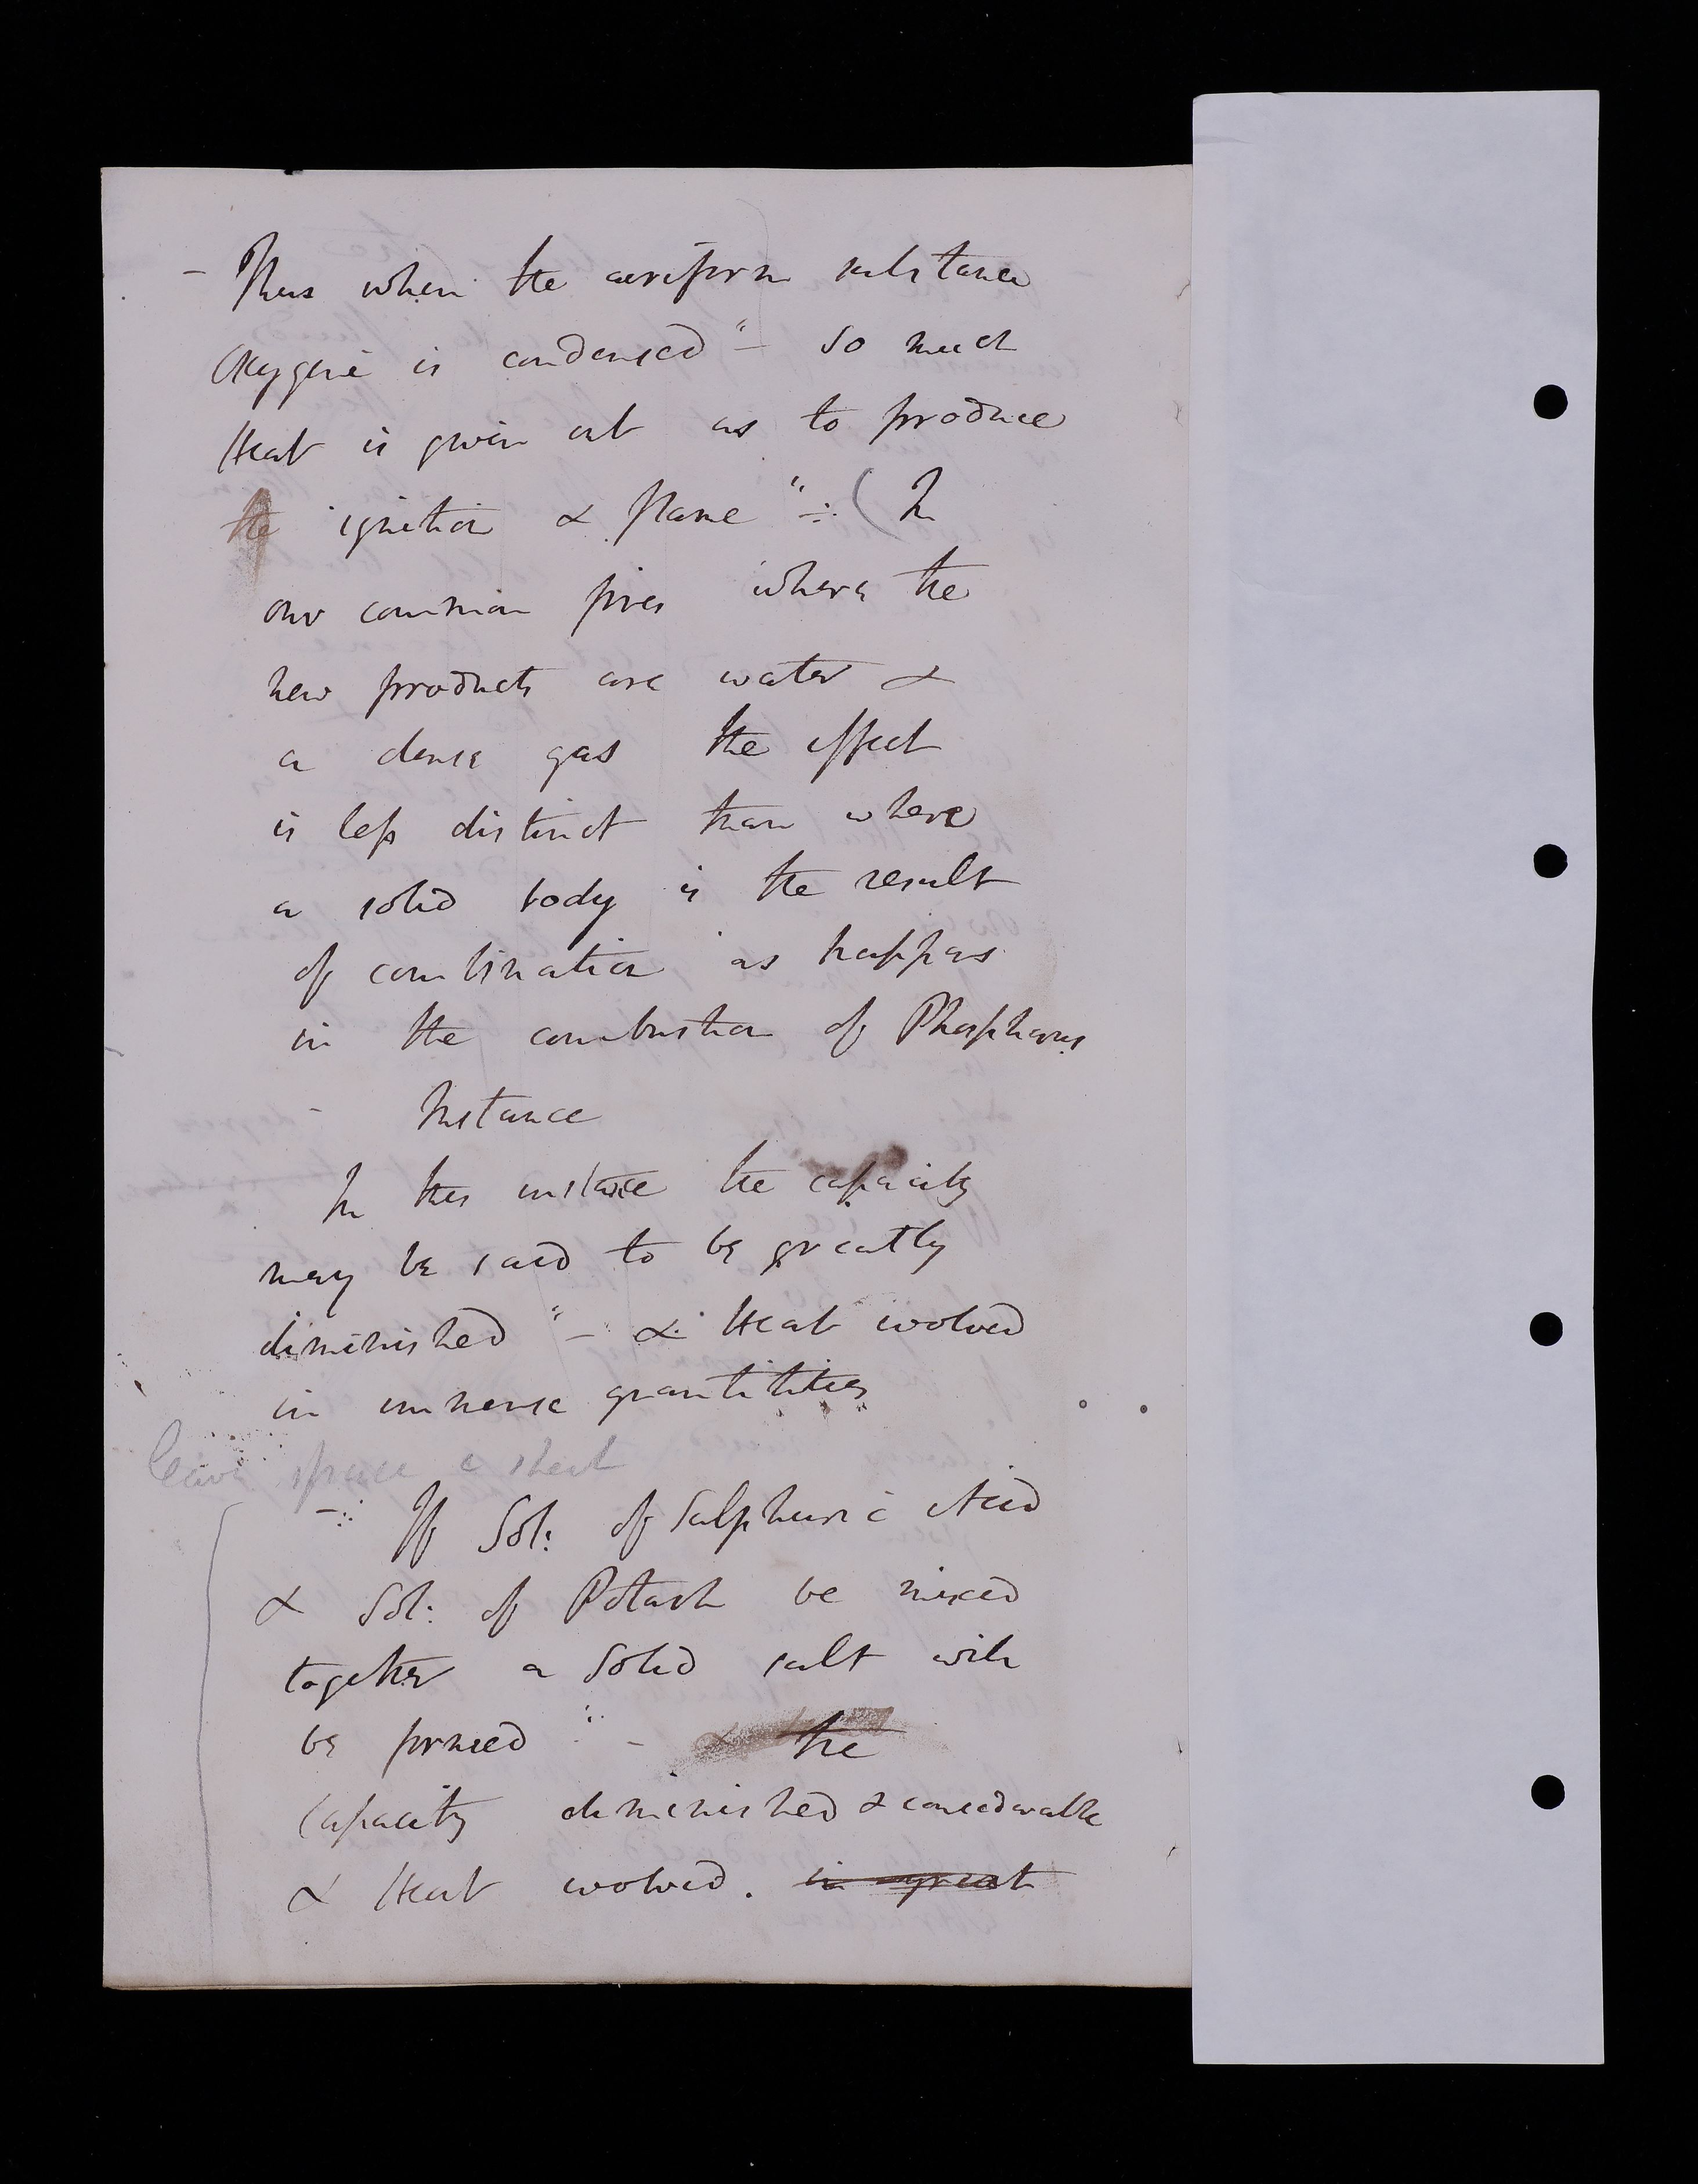 - Thus when the aeriform substance
Oxygene is condensed " - so much
Heat is given out as to produce
the ignition & flame " -:- ( In
our common fires where the
new products are water &
a dense gas the effect
is less distinct than where
a solid body is the result
of combination as happens
in the combustion of Phosphorus
- Instance
In this instance the capacity
may be said to be greatly
diminished " - & Heat evolved
in immense quantitities
leave space a sheet
-:- If Sol: of Sulphuric Acid
& Sol: of Potash be mixed
together a Solid salt will
be formed " - & the
capacity diminished & considerable
& Heat evolved. in great